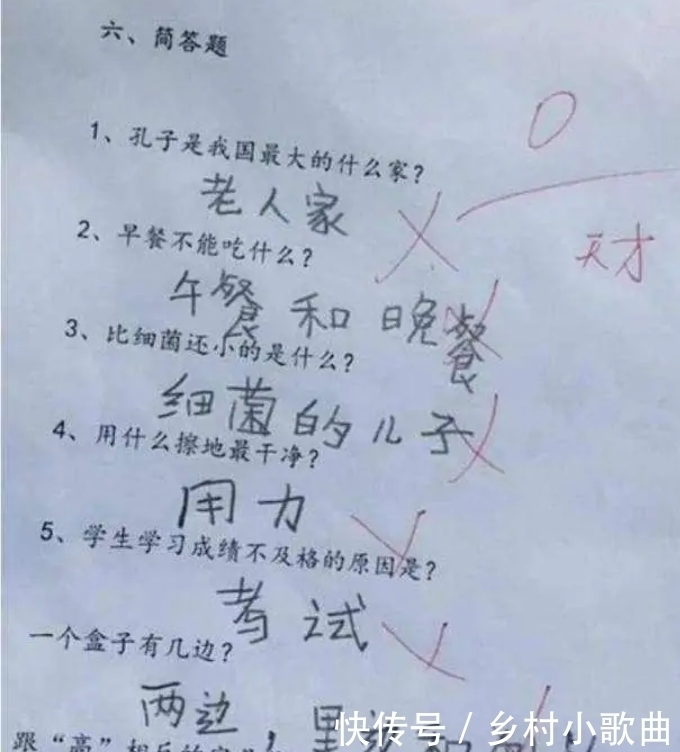 六、简答题
0
1、孔子是我国最大的什么家？
老人家
天才
2、早餐不能吃什么？
午餐和晚餐
3、比细菌还小的是什么？
细菌的儿子
4、用什么擦地最干净？
用力
5、学生学习成绩不及格的原因是？
考试
一个盒子有几边？
两边，里
跟“高”相反的
快传号 / 乡村小歌曲